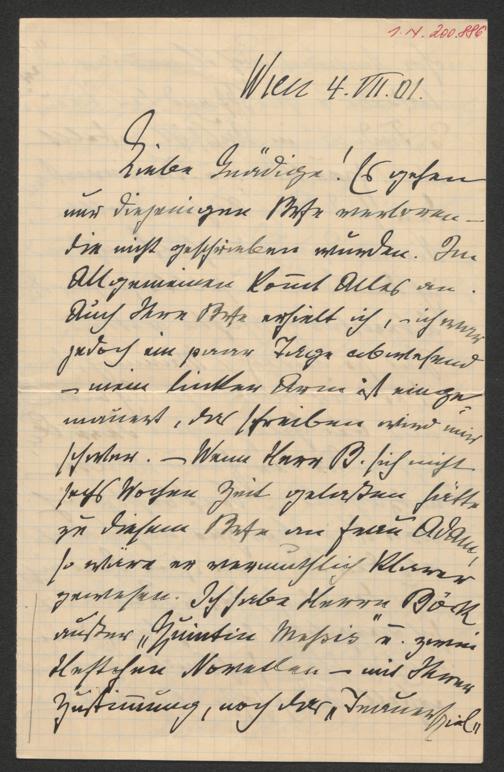 I.N. 200.886
Wien 4. VII. 01.
Liebe Gnädige! Es gehen
nur diejenigen Brfe verloren –
die nicht geschrieben wurden. Im
Allgemeinen kommt Alles an.
Auch Ihre Brfe erhielt ich, – ich war
jedoch ein paar Tage abwesend
– mein linker Arm ist einge
mauert, das schreiben wird mir
schwer. – Wenn Herr B. sich nicht
sechs Wochen Zeit gelassen hätte
zu diesem Brfe an Frau Adam,
so wäre er vermuthlich klarer
gewesen. Ich habe Herrn Böck
außer „Quintin Messis" u. zwei
Heftchen Novellen – mit Ihrer
Zustimmung, noch das „Trauerspiel"